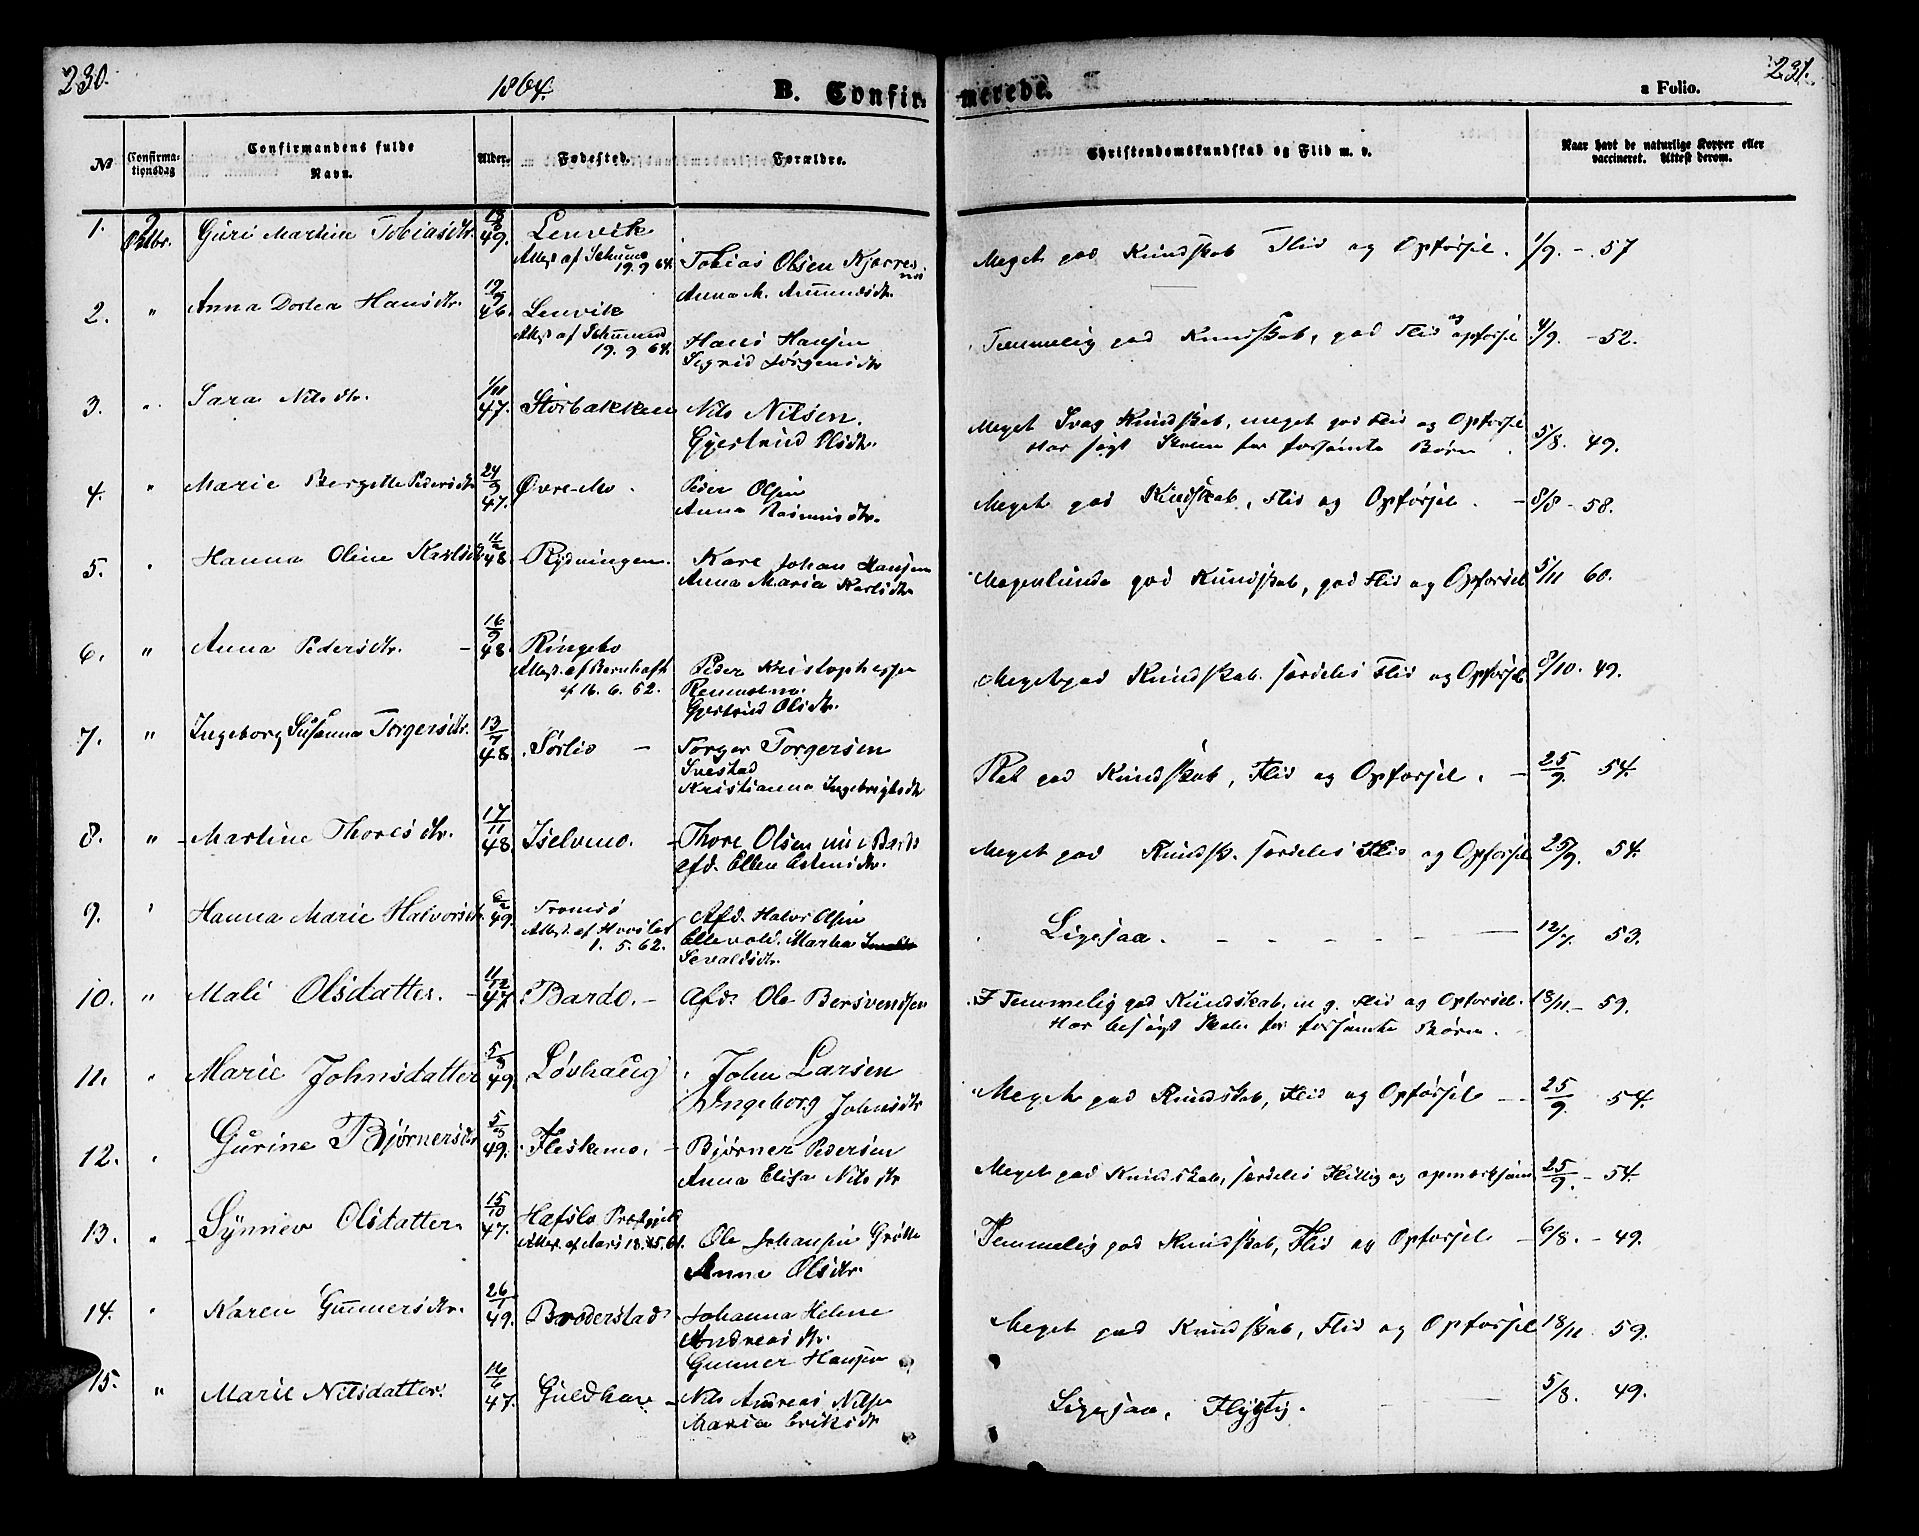 230.
1864.
B. Confir-
merede.
a Folio.
231.
No
Confirma-
tionsdag
Confirmandens fulde
Navn.
Alder.
Fødested.
Forældre.
Christendomskundskab og Flid m. v.
Naar havt de naturlige Kopper eller
vaccineret. Attest derom.
1. 2 Octbr. Guri Martine Tobiasdtr. 49. Lenvik
Attest af
19. 9 64. Tobias Olsen
Anna M. Amundsdtr.
Meget god Kundskab Flid og Opførsel. 1/9. - 57
2. " Anna Dortea Hansdtr. 46. Lenvik
Attest af
19. 9 64. Hans Hansen
Sigrid Jørgensdtr
Temmelig god Kundskab, god Flid og opførsel 4/9. - 52.
3. " Sara Nilsdtr. 1/11 47. Storbakken Nils Nilsen.
Gjertrud Olsdtr.
Meget Svag Kundskab, meget god Flid og Opførsel
Har søgt Skolen for forsømte Børn 5/8. 49.
4. " Marie Bergitte Pedersdtr 24/9 47. Øvre-Mo. Peder Olsen
Anna Rasmusdtr.
Meget god Kundskab, Flid og Opførsel. - 8/8 - 58.
5. " Hanna Oline Karlsdtr 11/2 48. Rydningen. Kare Johan Hansen
Anna Maria Karlsdtr
Megenlunde god Kundskab, god Flid og Opførsel 5/11 60.
6. " Anna Pedersdtr. - 16/9 48. Ringebo
Attest. af Bernhoft
af 16. 6. 62. Peder Kristophersen
Gjertrud Olsdtr.
Meget god Kundskab særdeles Flid og Opførsel 8/10. 49.
7. " Ingeborg Susanna Torgersdtr. 13/7 48. Sørlio - Torger Torgersen
Svestad
Kristianna Ingebrigtsdtr
Ret god Kundskab, Flid og Opførsel. - 25/9. 54.
8. " Martine Thoresdtr. 17/11 48. Iselvmo. Thore Olsen nu i Bardo
afd. Ellen Estensdtr.
Meget god Kundsk. særdeles Flid og Opførsel 25/9. 54.
9. " Hanna Marie Halvorsdtr. 6/2 49. Tromsø
Attest. af
1. 5. 62. Afd. Halvor Olsen
Ellevold. Martha
Sevaldsdtr.
Ligesaa. 12/7. 53.
10. " Mali Olsdatter. - 11/12 47. Bardo. - Afd. Ole Bersvendsen
Temmelig god Kundskab, m g. Flid og Opførsel.
Har besøgt Skolen for forsømte Børn. 18/11. - 59.
11. " Marie Johnsdatter 5/3 49. Løvhaug John Larsen
Ingeborg Johnsdtr
Meget god Kundskab, Flid og Opførsel - 25/9. 54.
12. " Gurine Bjørnersdtr 5/5 49. Fleskmo. - Bjørner Pedersen
Anna Elisa Nilsdtr
Meget god Kundskab, særdeles Flittig og opmærksom 25/9. - 54.
13. " Synnev Olsdatter. 15/10 47. Hafslo Præstegjeld
Attest. af Aars 18. 5. 61. Ole Johansen Grøtte
Anne Olsdtr.
Temmelig god Kundskab, Flid og Opførsel - 6/8. - 49.
14. " Karen Gunnersdtr. 26/1 49. Brøderstad Johanna Helene
Andreasdtr.
Gunner Hansen
Meget god Kundskab, Flid og Opførsel 18/11 59.
15. " Marie Nilsdatter. 16/6 47. Guldhav - Nils Andreas Nilsen
Maria Eriksdtr
Ligesaa, Flygtig. 5/8. 49.